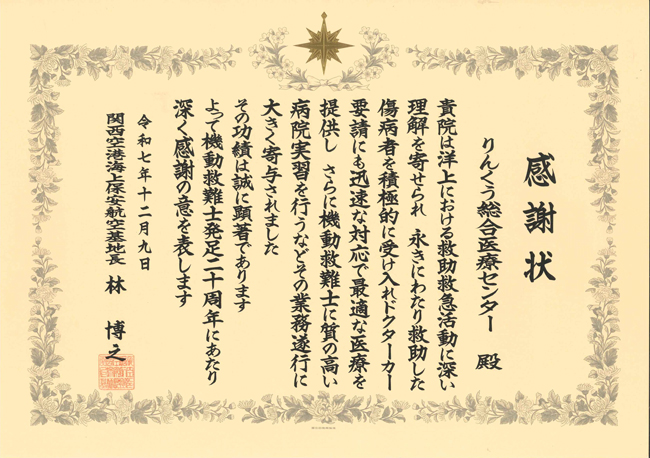 感謝状
りんくう総合医療センター 殿
貴院は洋上における救助救急活動に深い
理解を寄せられ 永きにわたり救助した
傷病者を積極的に受け入れドクターカー
要請にも迅速な対応で最適な医療を
提供し さらに機動救難士に質の高い
病院実習を行うなどその業務遂行に
大きく寄与されました
その功績は誠に顕著であります
よって機動救難士発足二十周年にあたり
深く感謝の意を表します
令和七年十二月九日
関西空港海上保安航空基地長 林 博之